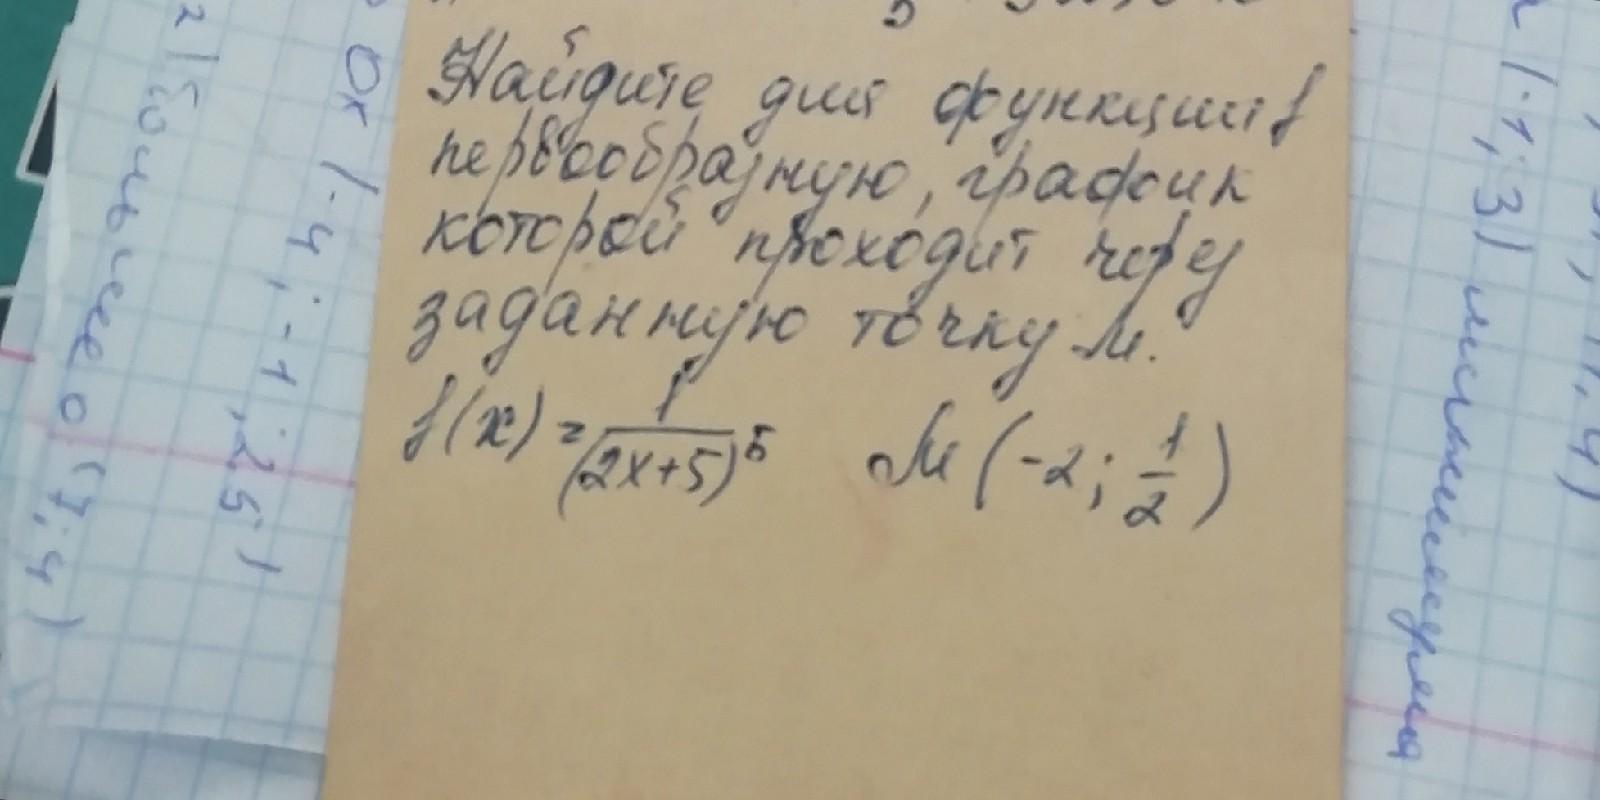 Найдите для функции f
первообразную, график
которой проходит через
заданную точку М.
f(x) = 1/(2x+5)^5 M (-2; 1/2)
Ox (-4; -1,25)
(7; 4)
(-1; 3)